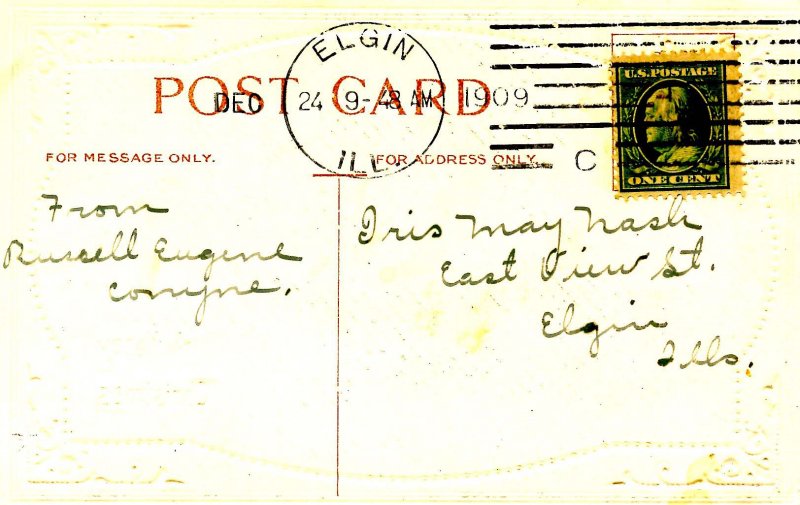 ELGIN
POST CARD
DEC 24 9-48 AM 1909
ILL.
C
U.S. POSTAGE
ONE CENT
FOR MESSAGE ONLY.
FOR ADDRESS ONLY.
From
Russell Eugene
Conyne.
Iris May Nash
East View St.
Elgin
Ills.